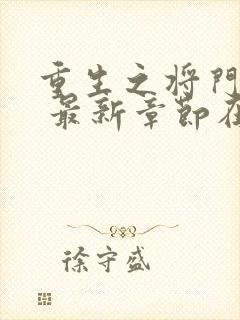 重生之将門
最新章節在
徐守盛